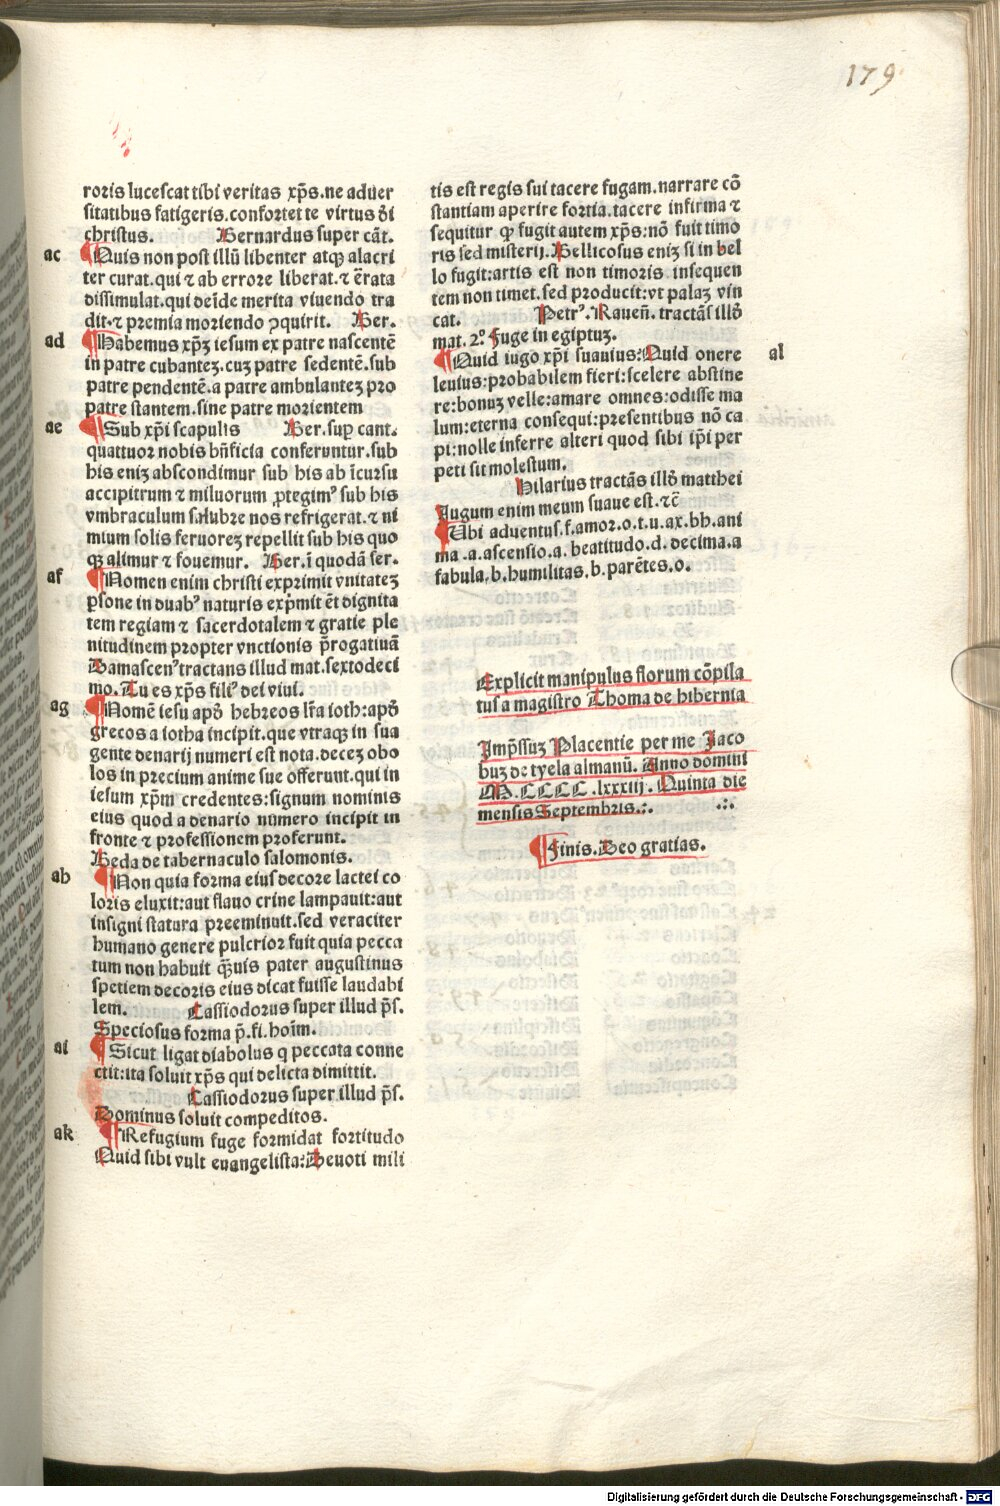 179
roris lucescat tibi veritas xp̄s. ne aduer
sitatibus fatigeris. confortet te virtus d̄i
christus. Bernardus super cāt.
ac ¶ Quis non post illū libenter atqꝫ alacri
ter curat. qui ⁊ ab errore liberat. ⁊ c̄rata
dissimulat. qui deīde merita viuendo tra
dit. ⁊ premia moriendo ꝓquirit. Ber.
ad ¶ Habemus xp̄ꝫ iesum ex patre nascentē
in patre cubanteꝫ. cuꝫ patre sedentē. sub
patre pendentē. a patre ambulanteꝫ pro
patre stantem. sine patre morientem
ae ¶ Sub xp̄i scapulis Ber. sup̱ cant.
quattuor nobis bn̄ficia conferuntur. sub
his eniꝫ abscondimur sub his ab īcursu
accipitrum ⁊ miluorum ꝓtegimꝰ sub his
vmbraculum salubre nos refrigerat. ⁊ ni
mium solis feruoreꝫ repellit sub his quo
qꝫ alimur ⁊ fouemur. Ber. ī quodā ser.
af ¶ Nomen enim christi exprimit vnitateꝫ
ꝑsone in duabꝰ naturis exp̄mit ēt dignita
tem regiam ⁊ sacerdotalem ⁊ gratie ple
nitudinem propter vnctionis p̄rogatiuā
Damascenꝰ tractans illud mat. sextodeci
mo. Tu es xp̄s filiꝰ dei viui.
ag ¶ Nomē iesu apd̓ hebreos lr̄a ioth: apd̓
grecos a iotha incipit. que vtraqꝫ in sua
gente denarij numeri est nota. deceꝫ obo
los in precium anime sue offerunt. qui in
iesum xp̄m credentes: signum nominis
eius quod a denario numero incipit in
fronte ⁊ professionem proferunt.
Beda de tabernaculo salomonis.
ab ¶ Non quia forma eius decore lactei co
loris eluxit: aut flauo crine lampauit: aut
insigni statura preeminuit. sed veraciter
humano genere pulcrior fuit quia pecca
tum non habuit qꝫuis pater augustinus
spetiem decoris eius dicat fuisse laudabi
lem. Cassiodorus super illud p̄s.
Speciosus forma p̄. fi. hoīm.
ai ¶ Sicut ligat diabolus q peccata conne
ctit: ita soluit xp̄s qui delicta dimittit.
Cassiodorus super illud p̄s.
Dominus soluit compeditos.
ak ¶ Refugium fuge formidat fortitudo
Quid sibi vult euangelista: Deuoti mili
tis est regis sui tacere fugam. narrare cō
stantiam aperire fortia. tacere infirma ⁊
sequitur ꝙ fugit autem xp̄s: nō fuit timo
ris sed misterij. Bellicosus eniꝫ si in bel
lo fugit: artis est non timoris. insequen
tem non timet. sed producit: vt palaꝫ vin
cat. Petrꝰ. Rauen̄. tractās illd̓
mat. 2º. Fuge in egiptuꝫ.
¶ Quid iugo xp̄i suauius: Quid onere al
leuius: probabilem fieri: scelere abstine
re: bonuꝫ velle: amare omnes: odisse ma
lum: eterna consequi: presentibus nō ca
pi: nolle inferre alteri quod sibi ip̄i per
peti sit molestum.
Hilarius tractās illd̓ matthei
Iugum enim meum suaue est. ⁊c̄
¶ Ubi aduentus. f. amor. o. t. u. ax. bb. ani
ma . a. ascensio. a. beatitudo. d. decima. a
fabula. b. humilitas. b. parētes. o.
Explicit manipulus florum cōpila
tus a magistro Thoma de hibernia
Imp̄ssuꝫ Placentie per me Jaco
buꝫ de tyela almanū. Anno domini
M. CCCC. lxxxiij. Quinta die
mensis Septembris .:. .:.
¶ Finis. Deo gratias.
Digitalisierung gefördert durch die Deutsche Forschungsgemeinschaft - DFG